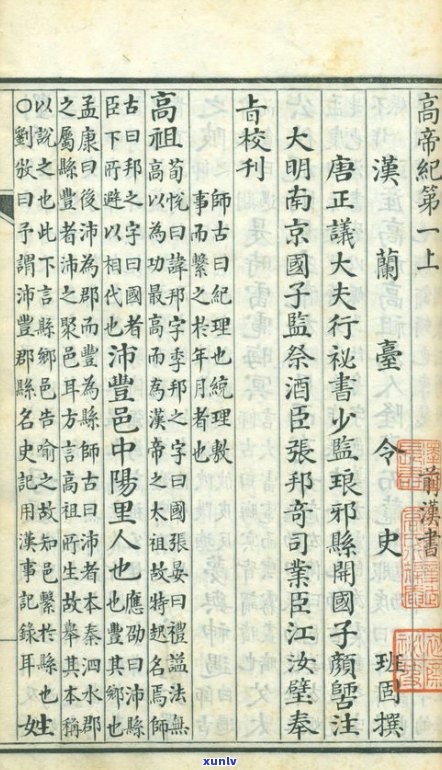 高帝紀第一上
前漢書
漢蘭臺令史班固撰
唐正議大夫行祕書少監琅邪縣開國子顏師古注
大明南京國子監祭酒臣張邦奇司業臣江汝璧奉
旨校刊
師古曰紀理也統理數
事而繫之於年月者也
高祖
荀悅曰諱邦字季邦之字曰國張晏曰禮謚法無
高以為功最高而為漢帝之太祖故特起名焉師
古曰邦之字曰國者
臣下所避以相代也
沛豐邑中陽里人也
應劭曰沛縣
也豐其鄉也
孟康曰後沛為郡而豐為縣師古曰沛者本秦泗水郡
之屬縣豐者沛之聚邑耳方言高祖所生故舉其本稱
以說之也此下言縣鄉邑告喻之故知邑繫於縣也
○劉攽曰予謂沛豐郡縣名史記用漢事記錄耳
姓
xunlv